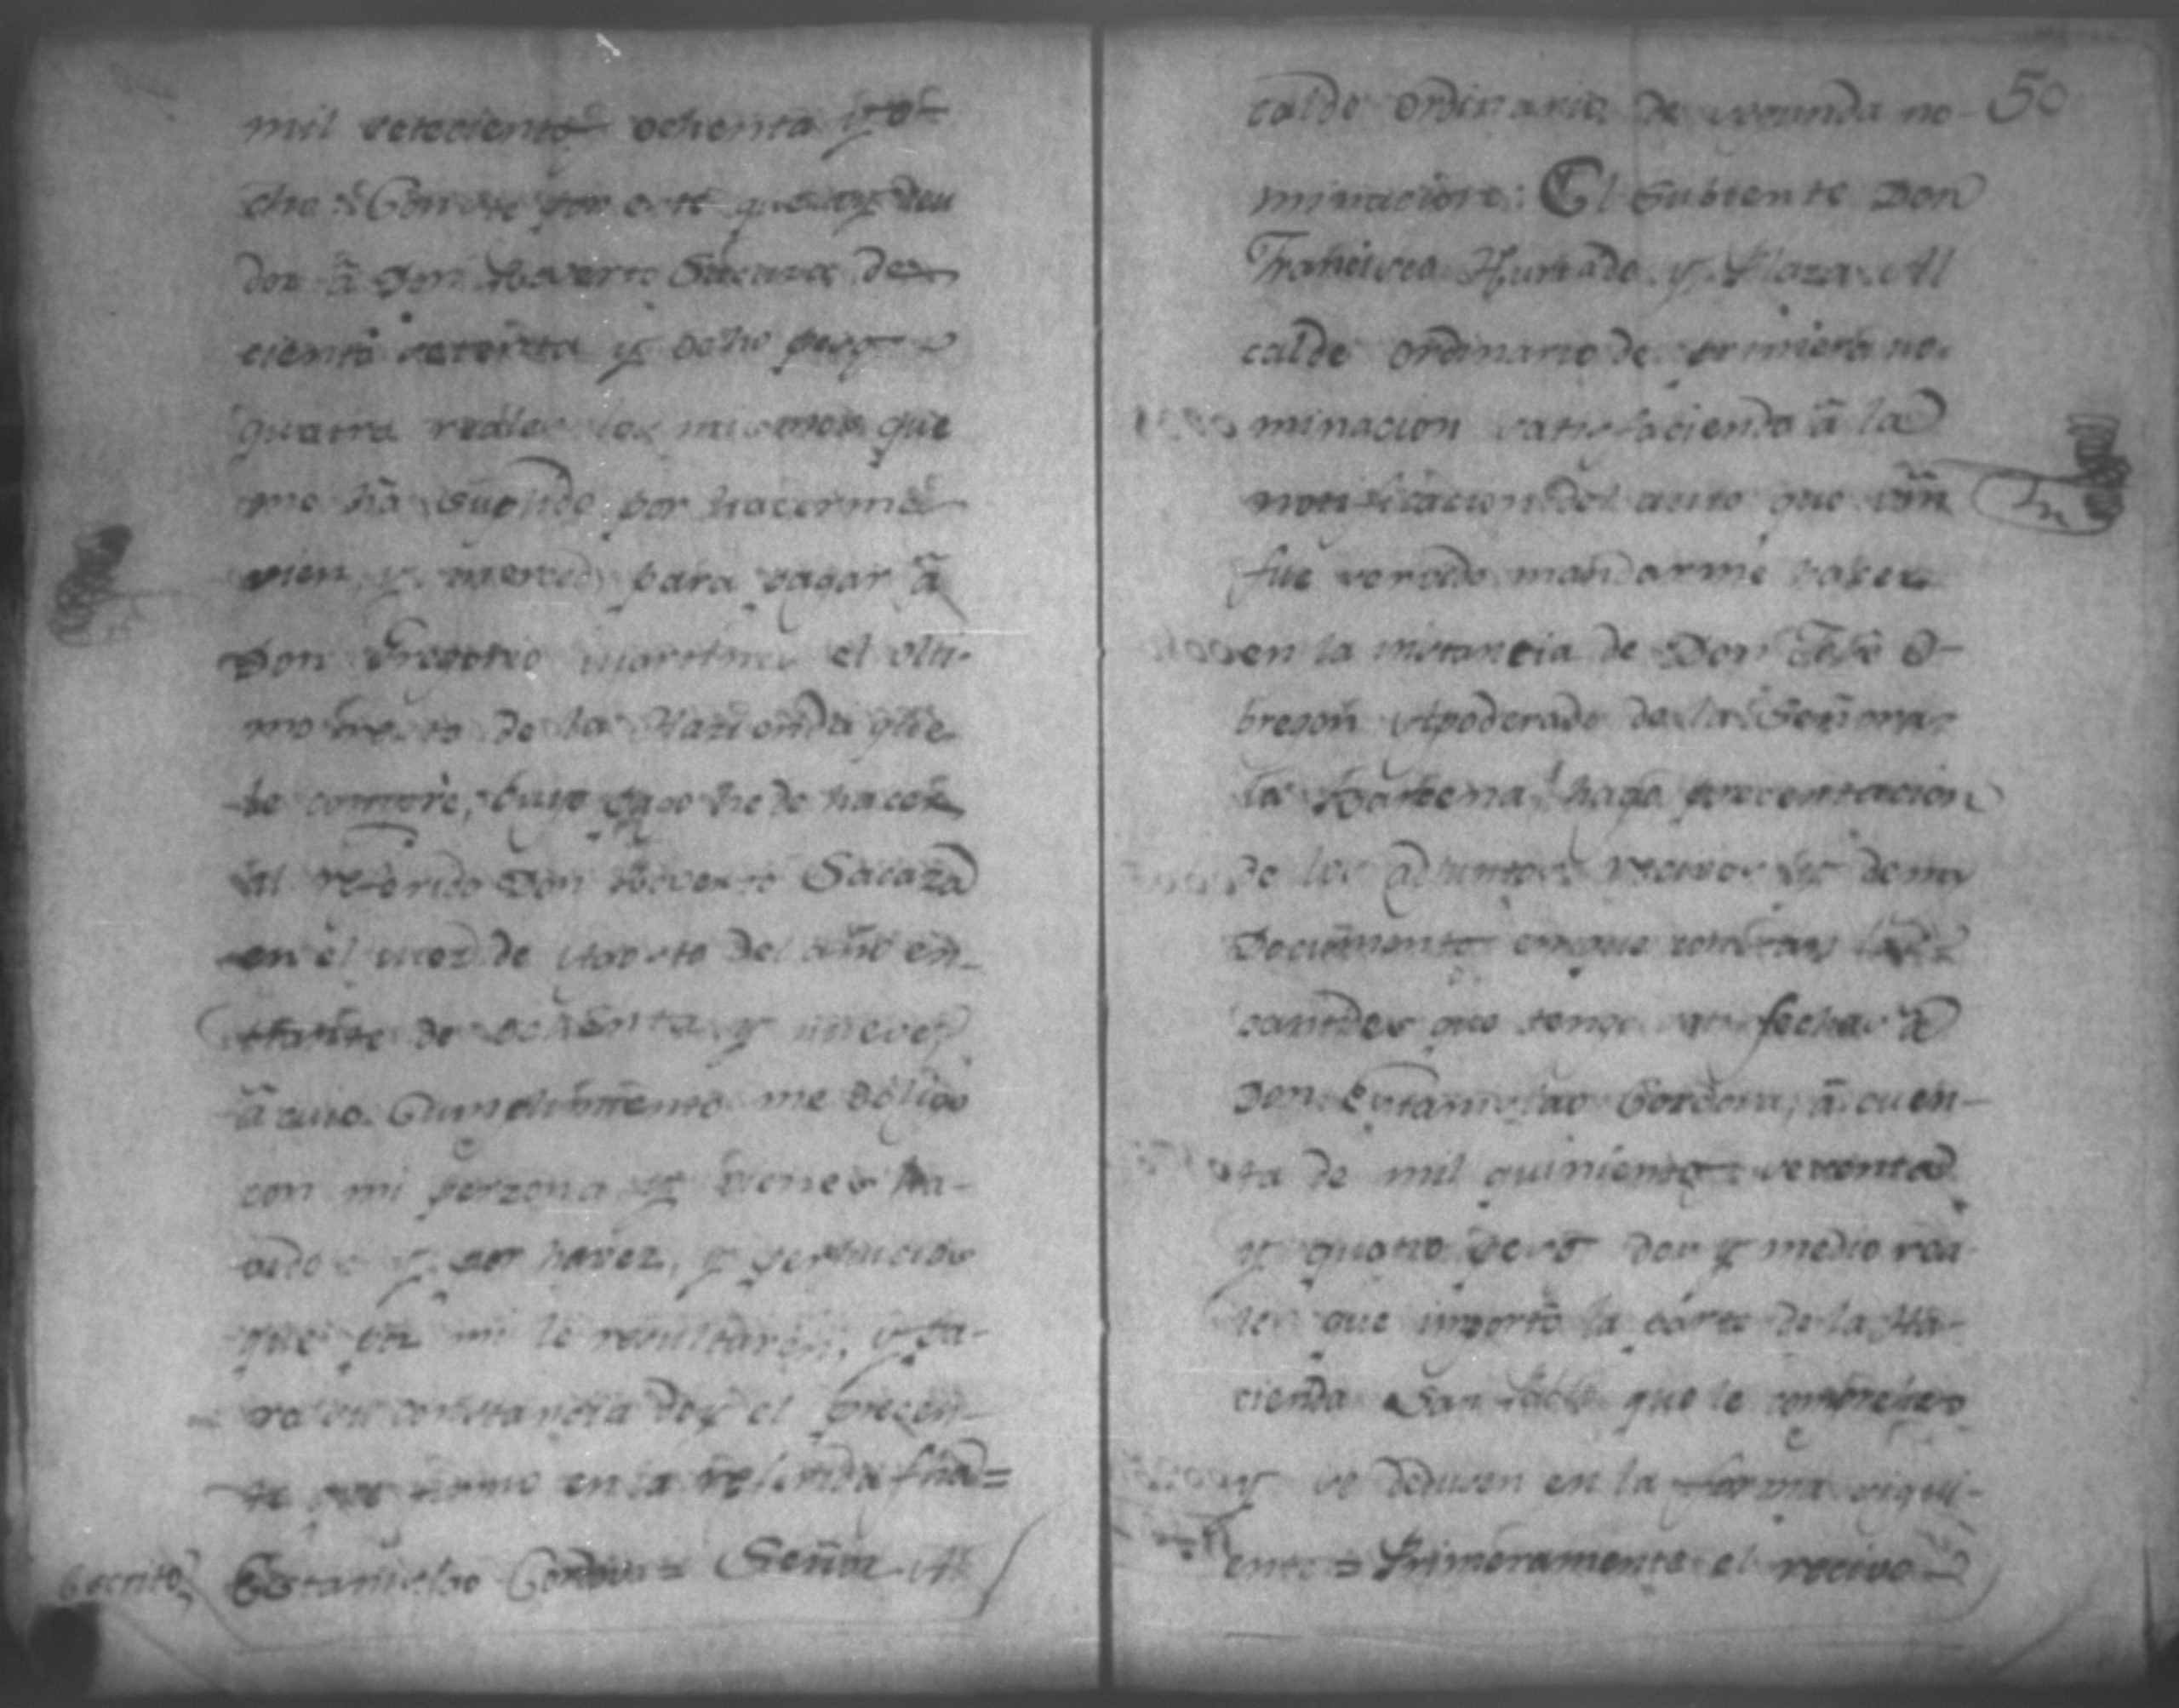 mil setecientos ochenta y o-
cho = Conste por este que soy deu
dor â Don Roverto Sacaza de
ciento setenta y ocho pesos
quatro reales los mismos que
me hâ suplido por hacerme
vien y merced para pagar â
Don Gregorio Martines el olti-
mo resto de la Hazienda que
le compré, cuyo pago he de hacer
al referido Don Roverto Sacaza
en el mez de Agosto del año en-
trante de ochenta y nueve
â cuio Cumplimiento me obligo
con mi perzona y vienes ha-
vidos y por haver, y perjuicios
que por mi le resultaren, y pa-
ra su constancia doy el precen-
te que firmo en la referida fha=
Escrito Estanislao Cordova = Señor Al
50
calde ordinario de segunda no-
minacion: El Subtente Don
Francisco Hurtado y Plaza Al
calde ordinario de primera no-
minacion satisfaciendo â la
notificacion del auto que vm̃
fue servido mandarme haser
en la instancia de Don José O-
bregon Apoderado de la Señora
hago precentacion
de los adjuntos recivos y demas
Documentos en que constan las
cantides que tengo satisfechas â
Don Estanislao Cordova, â cuen-
ta de mil quinientos setenta
y quatro pesos dos y medio rea
les que importó la parte de la Ha-
cienda San que le
y se deducen en la forma sigui-
ente = Primeramente el recivo